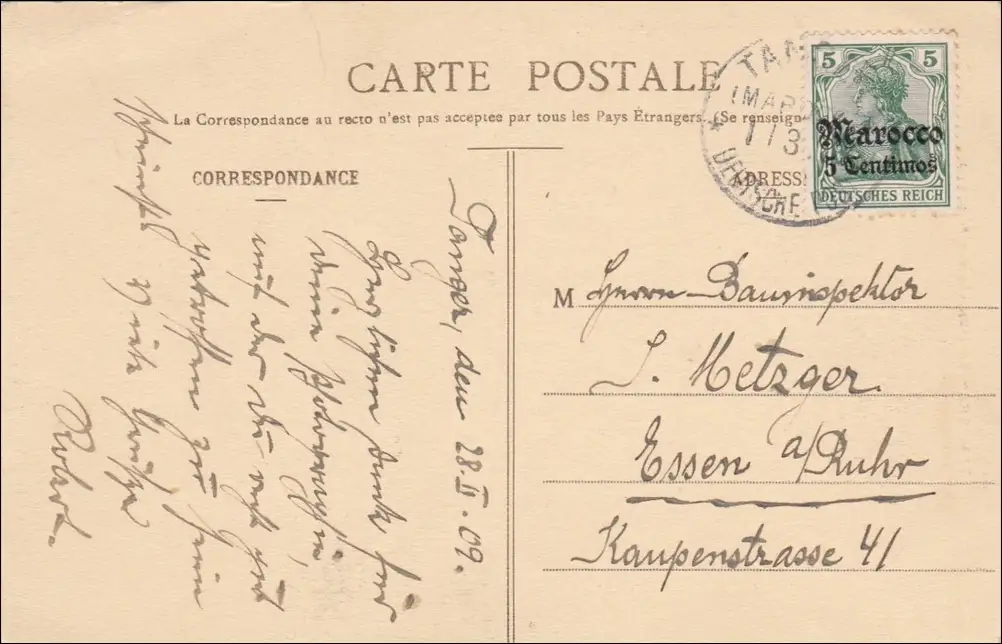 CARTE POSTALE
La Correspondance au recto n'est pas acceptée par tous les Pays Étrangers. (Se renseign
CORRESPONDANCE
ADRESS
TAN
(MARO
1/3
* DEUTSCHE PO
5 5
Marocco
5 Centimos
DEUTSCHES REICH
Tanger, den 28.II.09.
Herzlichen Dank für
deine
mit der Du recht gut
getroffen zu sein
scheinst
Viele Grüße
Robert.
M Herrn Bauinspektor
J. Metzger
Essen a/Ruhr
Kaupenstrasse 41